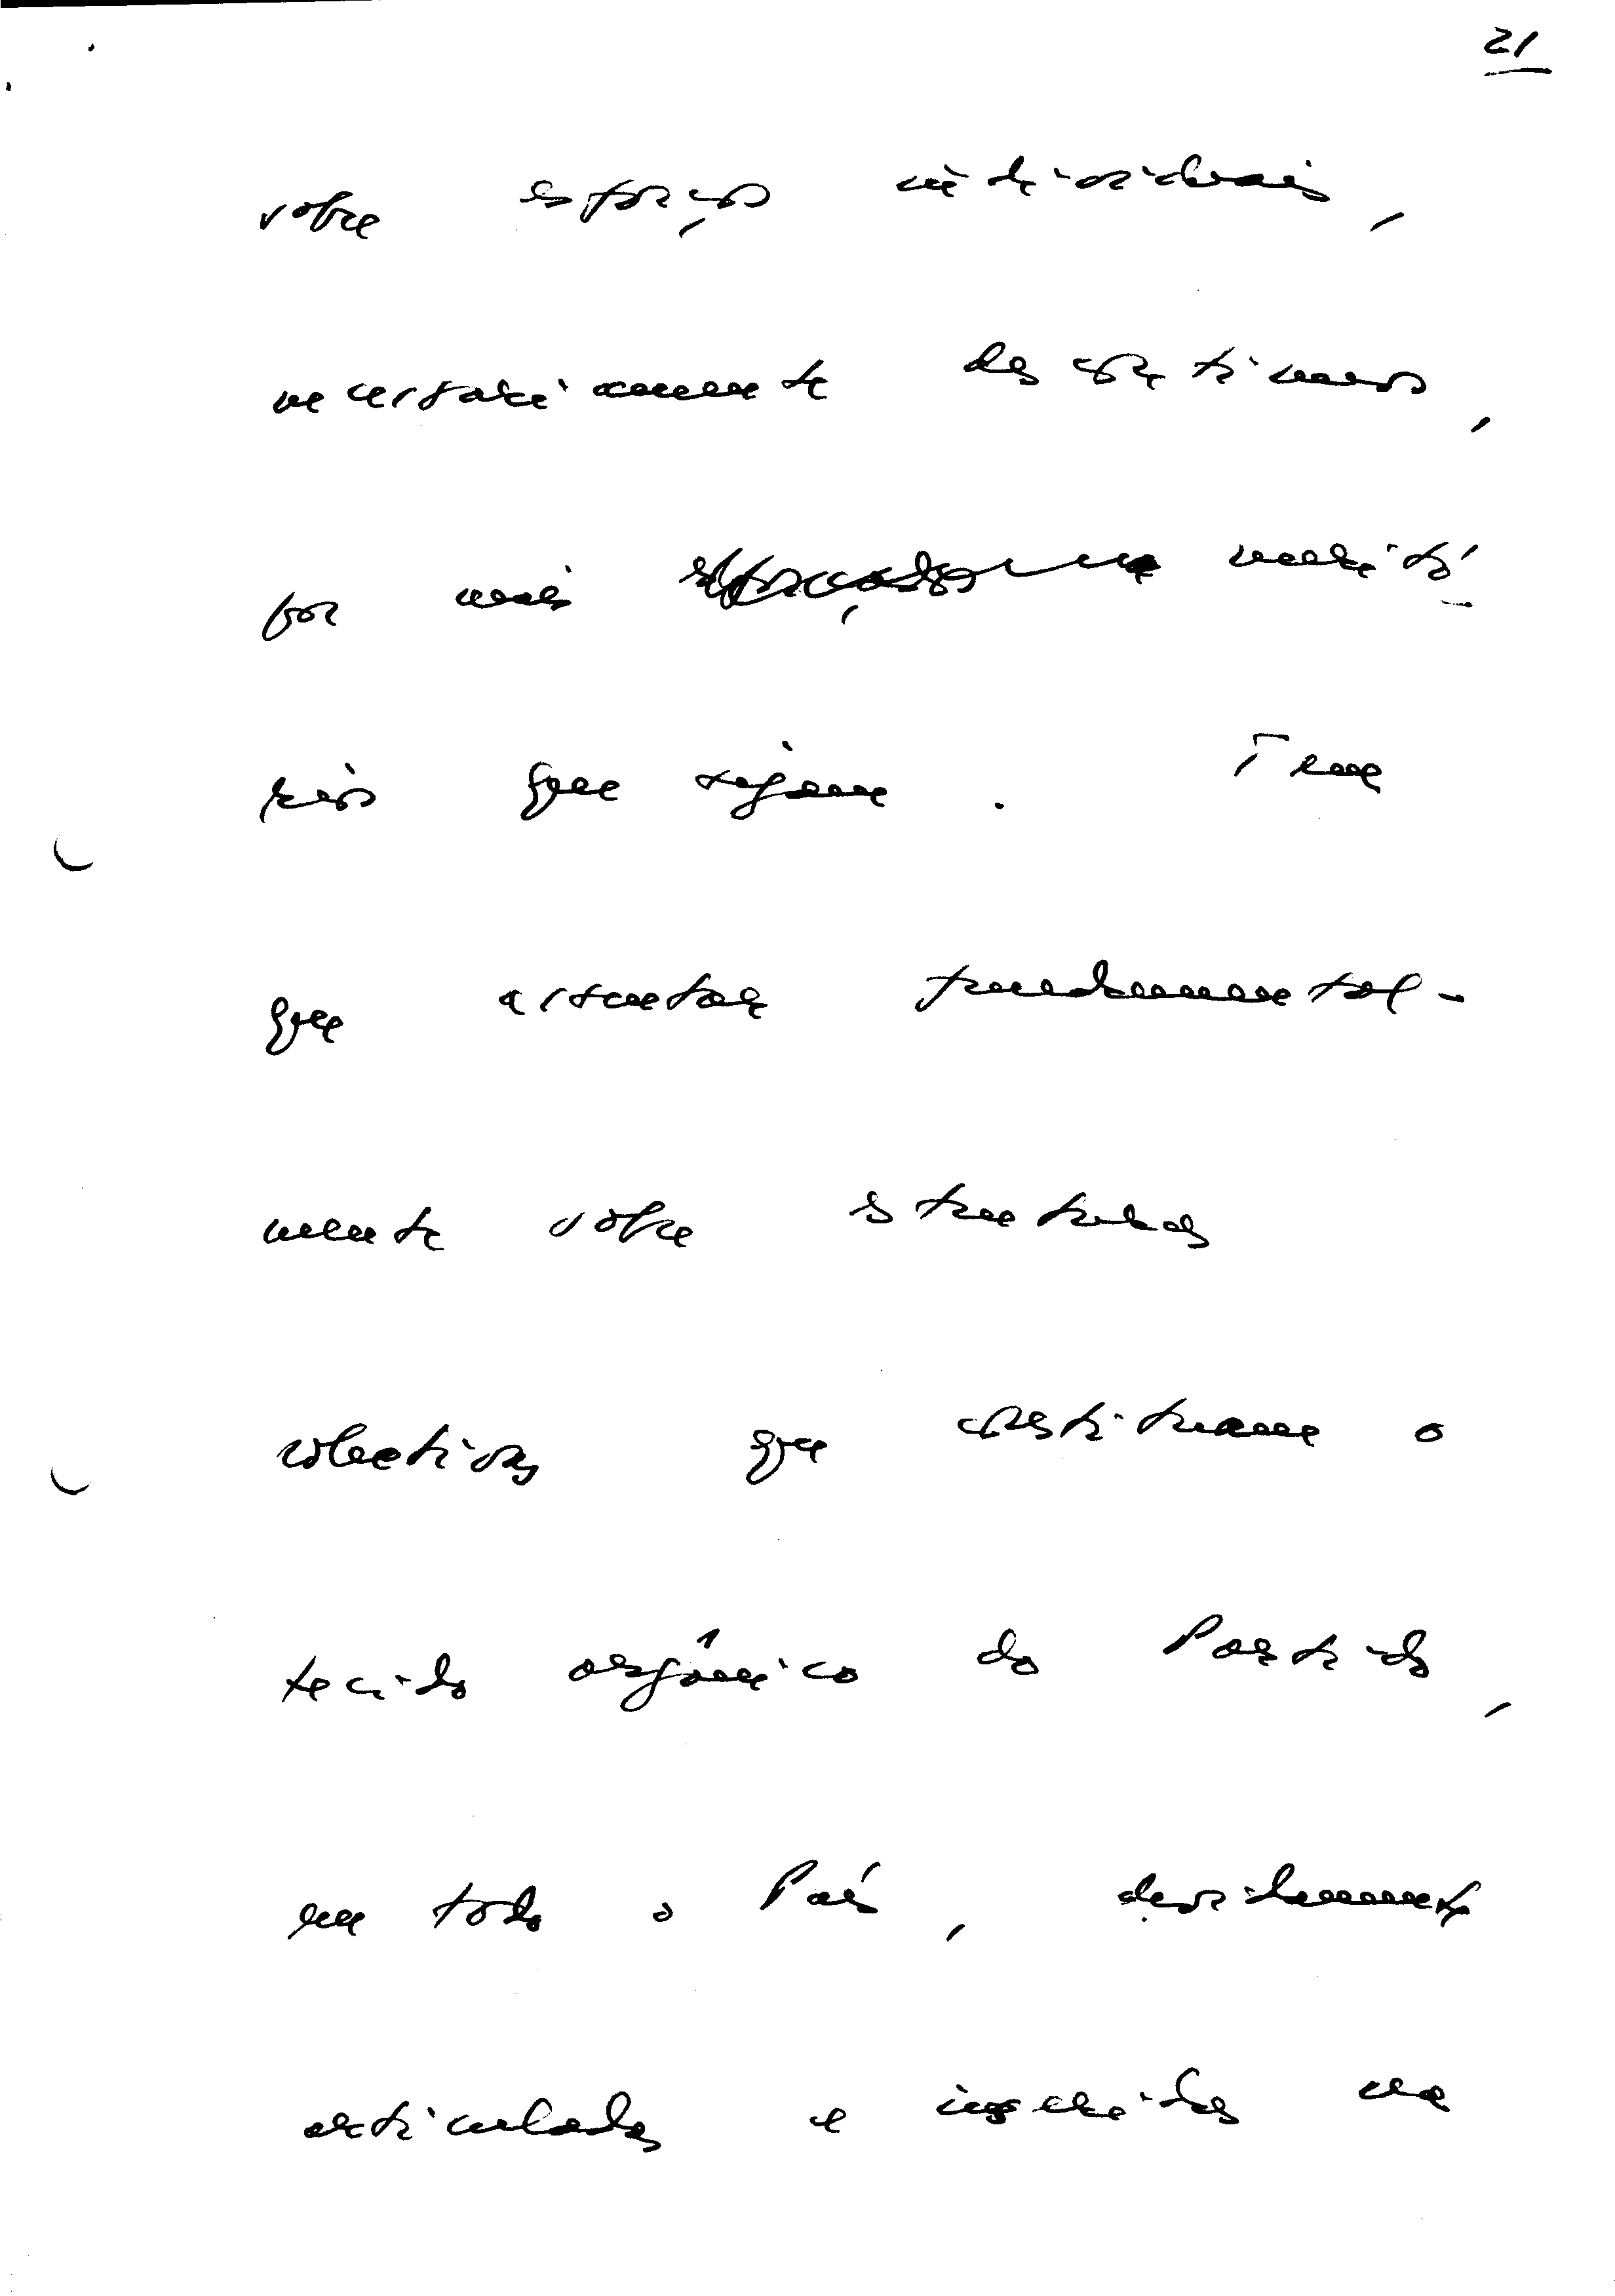 21
sobre esforços individuais,
necessariamente descontinuos,
por mais meritó-
rios que sejam. Tem
que assentar fundamental-
mente sobre estruturas
colectivas que constituam o
tecido orgânico do Partido,
em todo o País, devidamente
articuladas e inseridas na